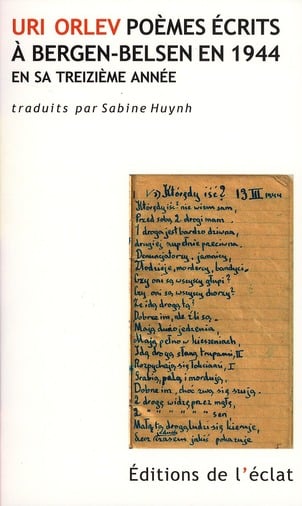 URI ORLEV POÈMES ÉCRITS
À BERGEN-BELSEN EN 1944
EN SA TREIZIÈME ANNÉE
traduits par Sabine Huynh
Którędy iść? 13 III 1944
Którędy iść - nie wiem sam,
Przed sobą 2 drogi mam.
1 droga jest bardzo dziwna,
drugiej zupełnie przeciwna.
Denuncjatorzy, jamnicy,
Złodzieje, mordercy, bandyci..
Czy oni są wszyscy głupi?
Czy oni są wszyscy chorzy?
Że idą drogą tą?
Dobrze im, ale źli są.
Mają dużo jedzenia,
Mają pełno w kieszeniach,
Idą drogą słaną trupami, II
Rozpychają się łokciami, I
Grabią, palą i mordują,
Dobrze im, choć zwą się szują.
2 drogę widzę przez mgłę,
2 " " " " sen.
Małą tą drogą ludzi się kieruje,
czasem jakiś pokazuje
Éditions de l'éclat